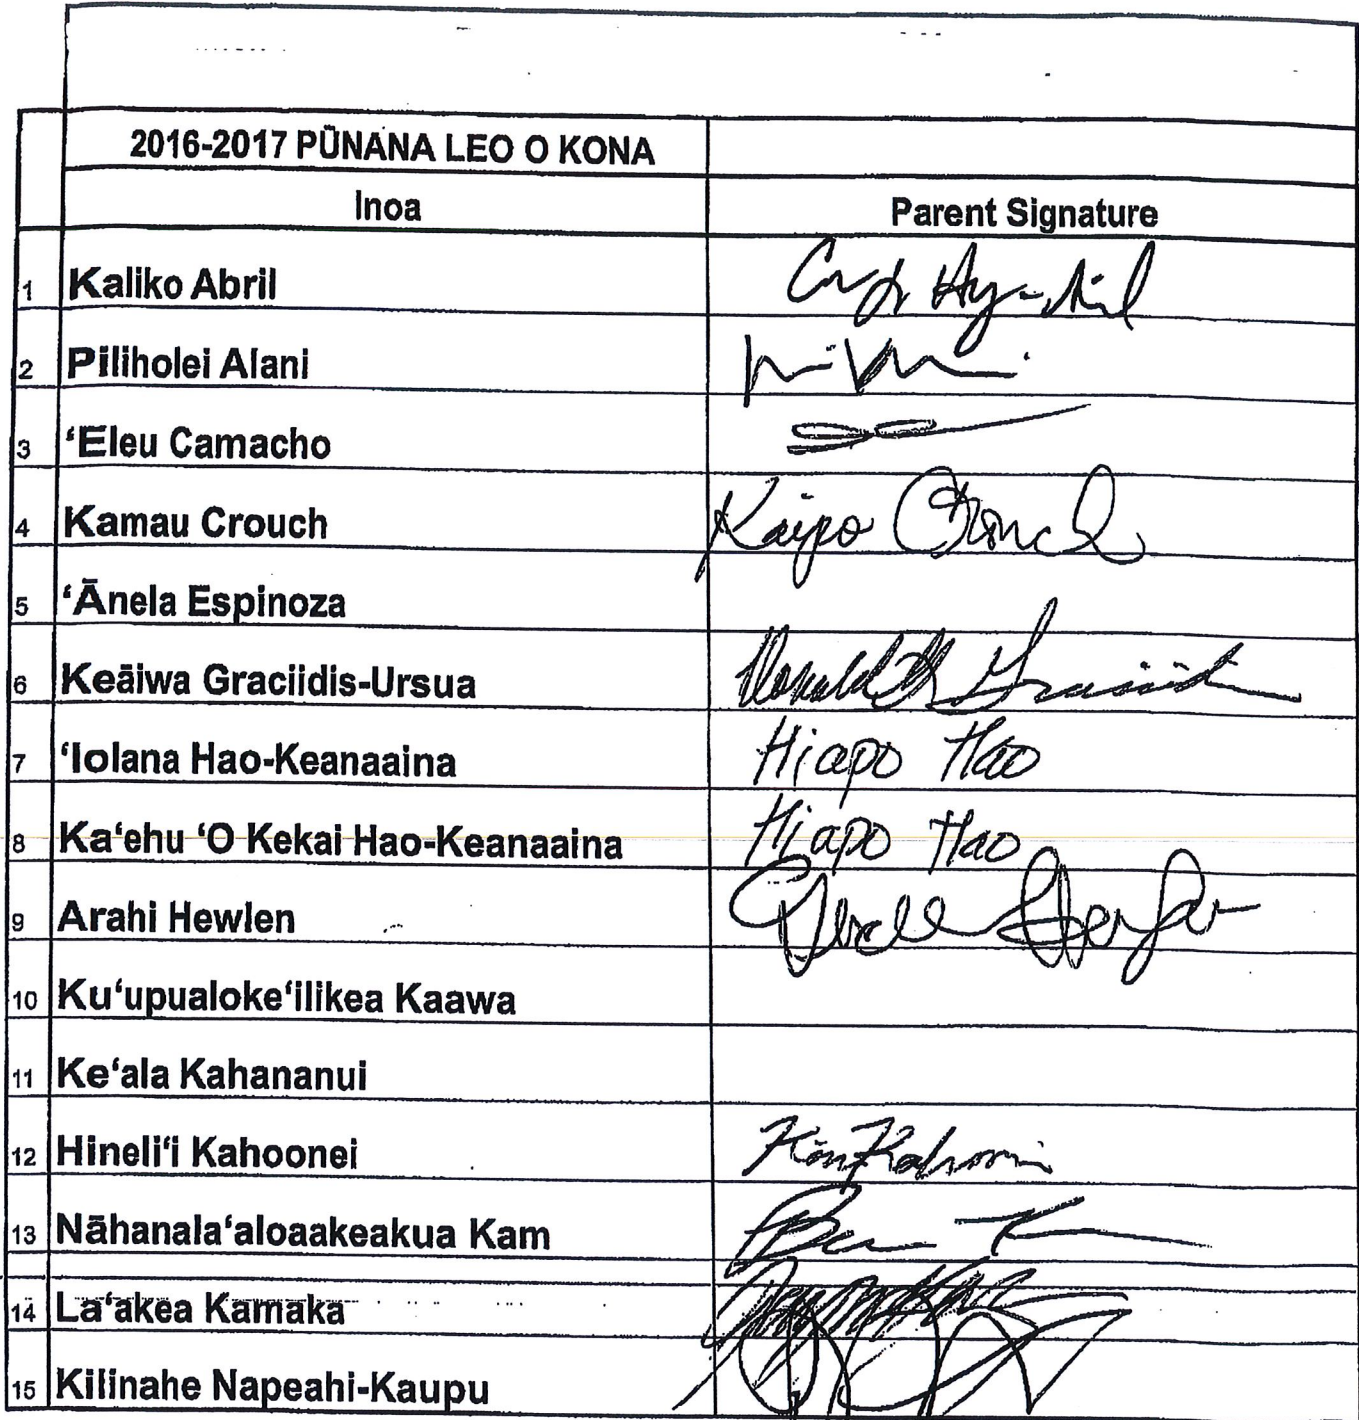 2016-2017 PŪNANA LEO O KONA
Inoa Parent Signature
1 Kaliko Abril
2 Piliholei Alani
3 ‘Eleu Camacho
4 Kamau Crouch Kaipo Crouch
5 ‘Ānela Espinoza
6 Keāiwa Graciidis-Ursua
7 ‘Iolana Hao-Keanaaina Hiapo Hao
8 Ka‘ehu ‘O Kekai Hao-Keanaaina Hiapo Hao
9 Arahi Hewlen
10 Ku‘upualoke‘ilikea Kaawa
11 Ke‘ala Kahananui
12 Hineli‘i Kahoonei
13 Nāhanala‘aloaakeakua Kam
14 La‘akea Kamaka
15 Kilinahe Napeahi-Kaupu